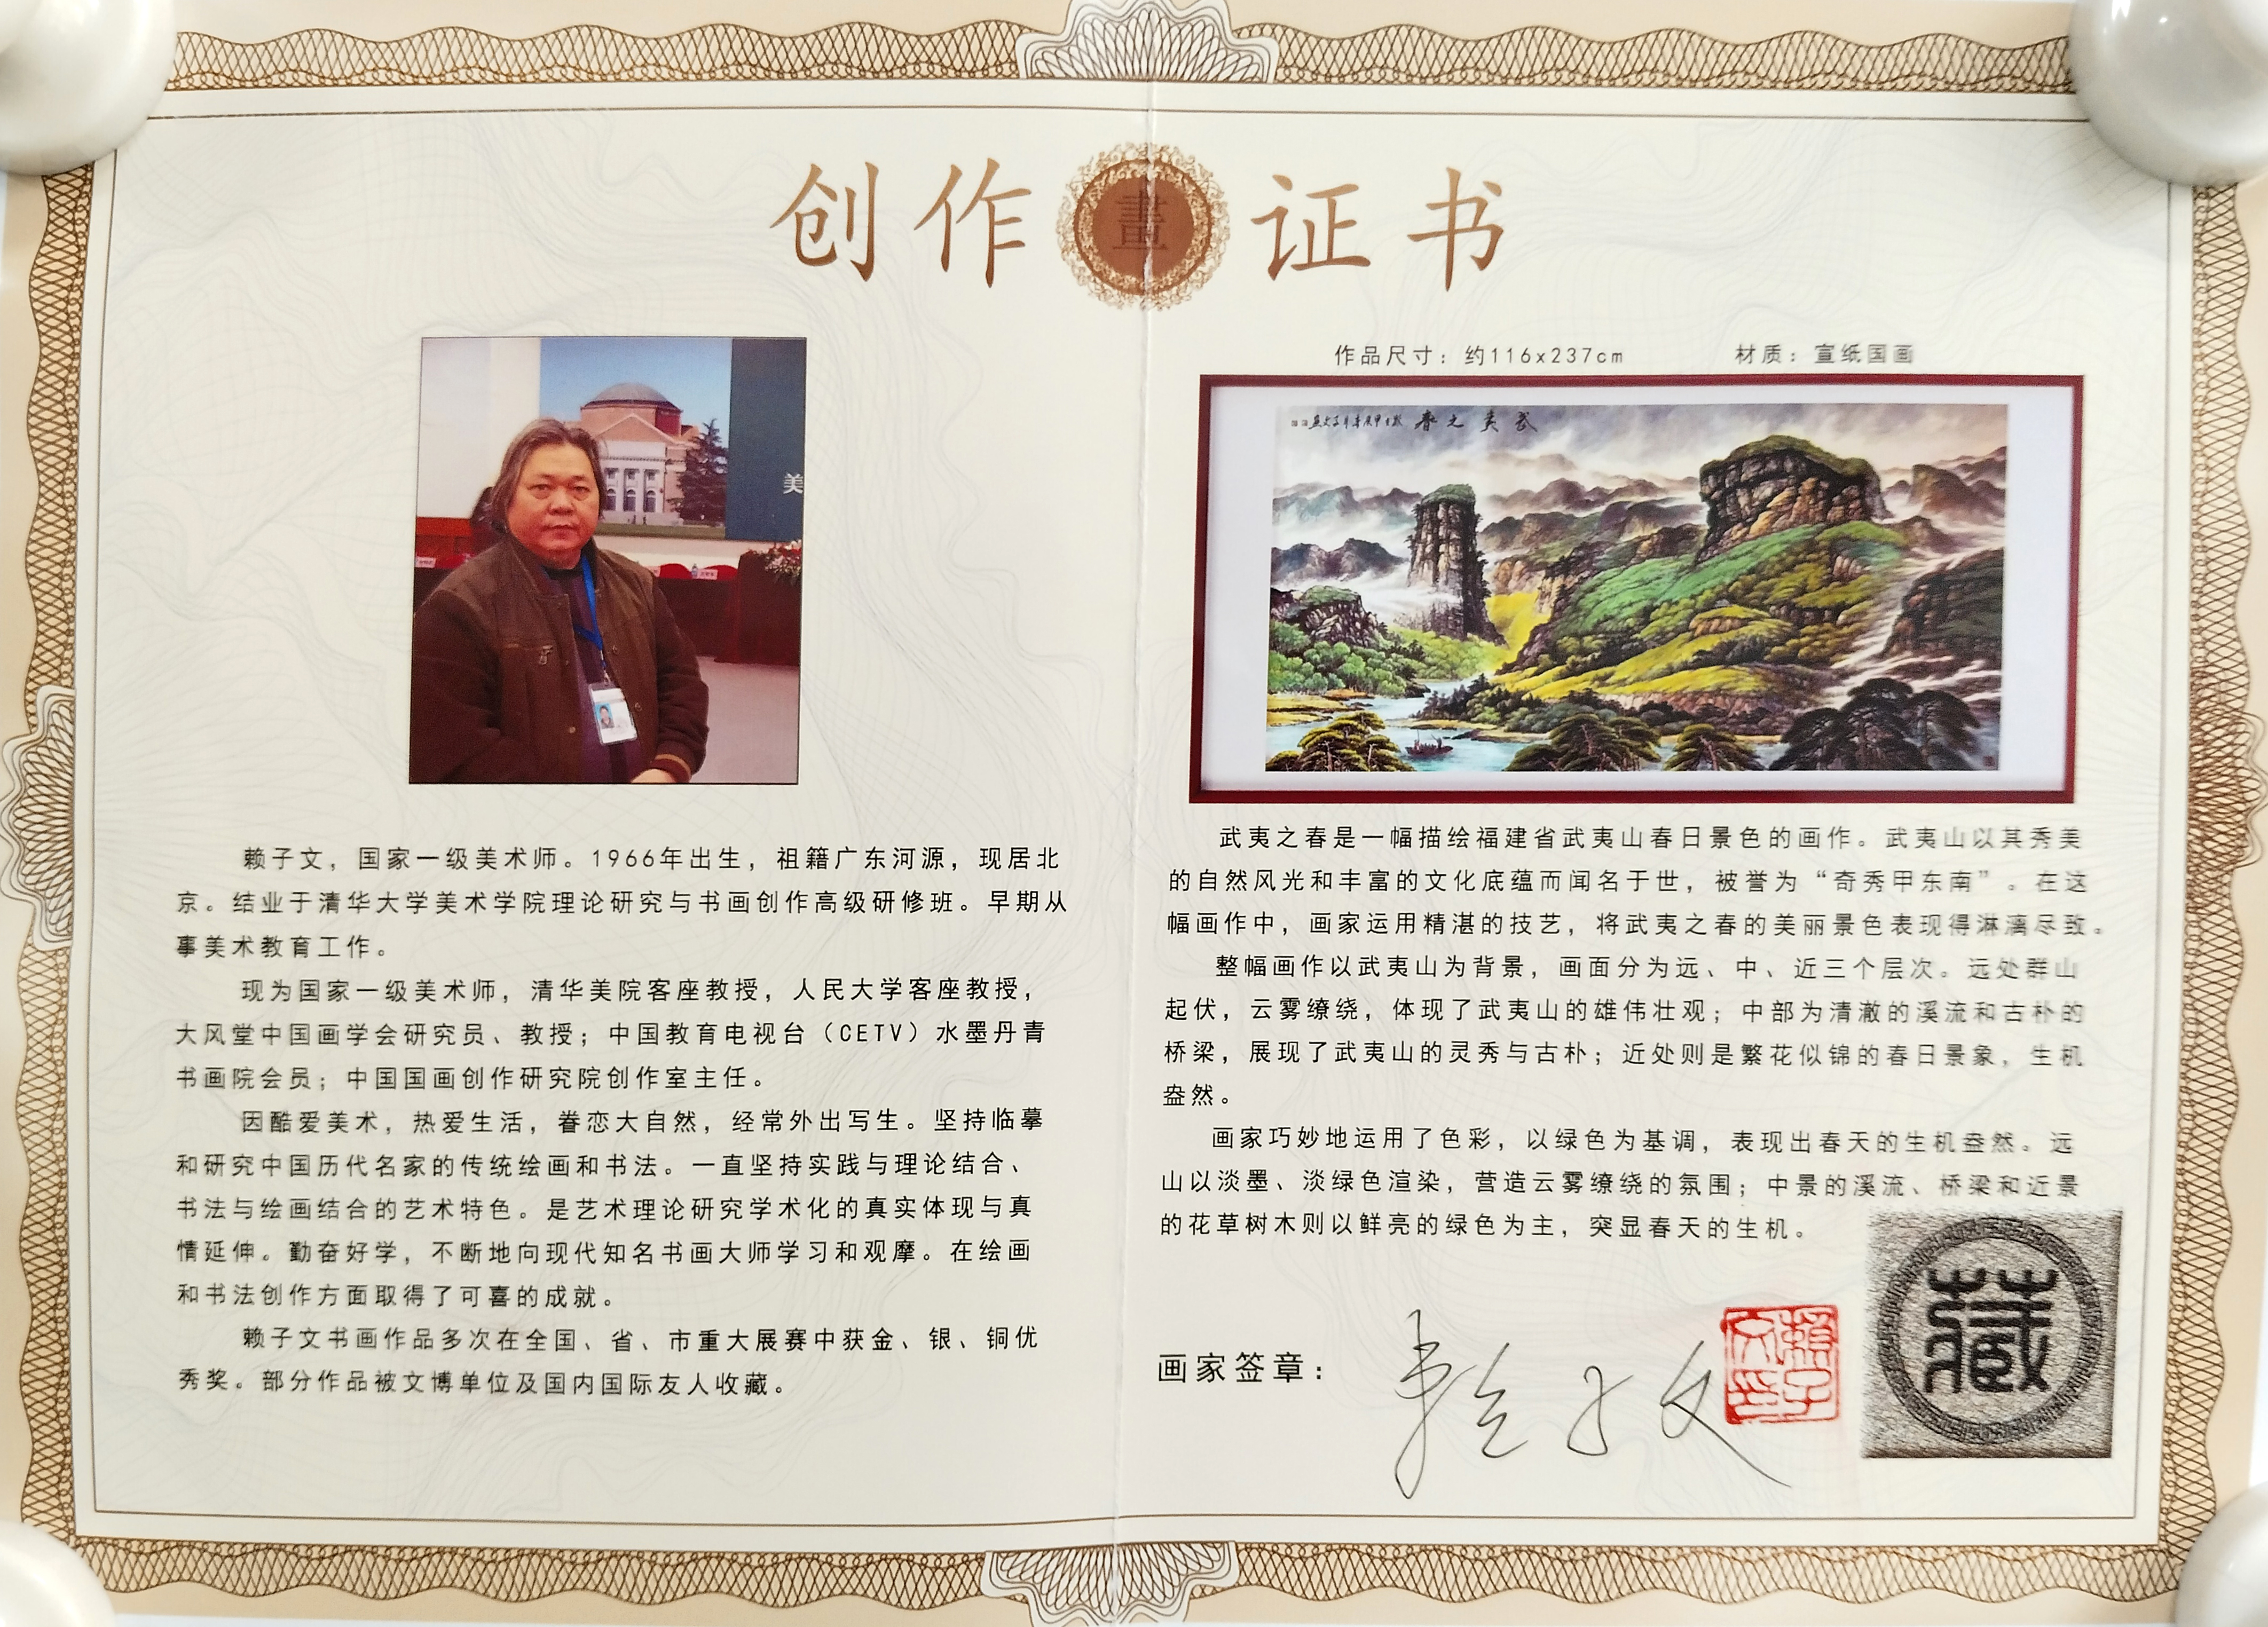 创作畫证书
美
赖子文，国家一级美术师。1966年出生，祖籍广东河源，现居北
京。结业于清华大学美术学院理论研究与书画创作高级研修班。早期从
事美术教育工作。
现为国家一级美术师，清华美院客座教授，人民大学客座教授，
大风堂中国画学会研究员、教授；中国教育电视台（CETV）水墨丹青
书画院会员；中国国画创作研究院创作室主任。
因酷爱美术，热爱生活，眷恋大自然，经常外出写生。坚持临摹
和研究中国历代名家的传统绘画和书法。一直坚持实践与理论结合、
书法与绘画结合的艺术特色。是艺术理论研究学术化的真实体现与真
情延伸。勤奋好学，不断地向现代知名书画大师学习和观摩。在绘画
和书法创作方面取得了可喜的成就。
赖子文书画作品多次在全国、省、市重大展赛中获金、银、铜优
秀奖。部分作品被文博单位及国内国际友人收藏。
作品尺寸：约116x237cm 材质：宣纸国画
武夷之春
武夷之春是一幅描绘福建省武夷山春日景色的画作。武夷山以其秀美
的自然风光和丰富的文化底蕴而闻名于世，被誉为“奇秀甲东南”。在这
幅画作中，画家运用精湛的技艺，将武夷之春的美丽景色表现得淋漓尽致。
整幅画作以武夷山为背景，画面分为远、中、近三个层次。远处群山
起伏，云雾缭绕，体现了武夷山的雄伟壮观；中部为清澈的溪流和古朴的
桥梁，展现了武夷山的灵秀与古朴；近处则是繁花似锦的春日景象，生机
盎然。
画家巧妙地运用了色彩，以绿色为基调，表现出春天的生机盎然。远
山以淡墨、淡绿色渲染，营造云雾缭绕的氛围；中景的溪流、桥梁和近景
的花草树木则以鲜亮的绿色为主，突显春天的生机。
画家签章：赖子文
賴子文印
藏